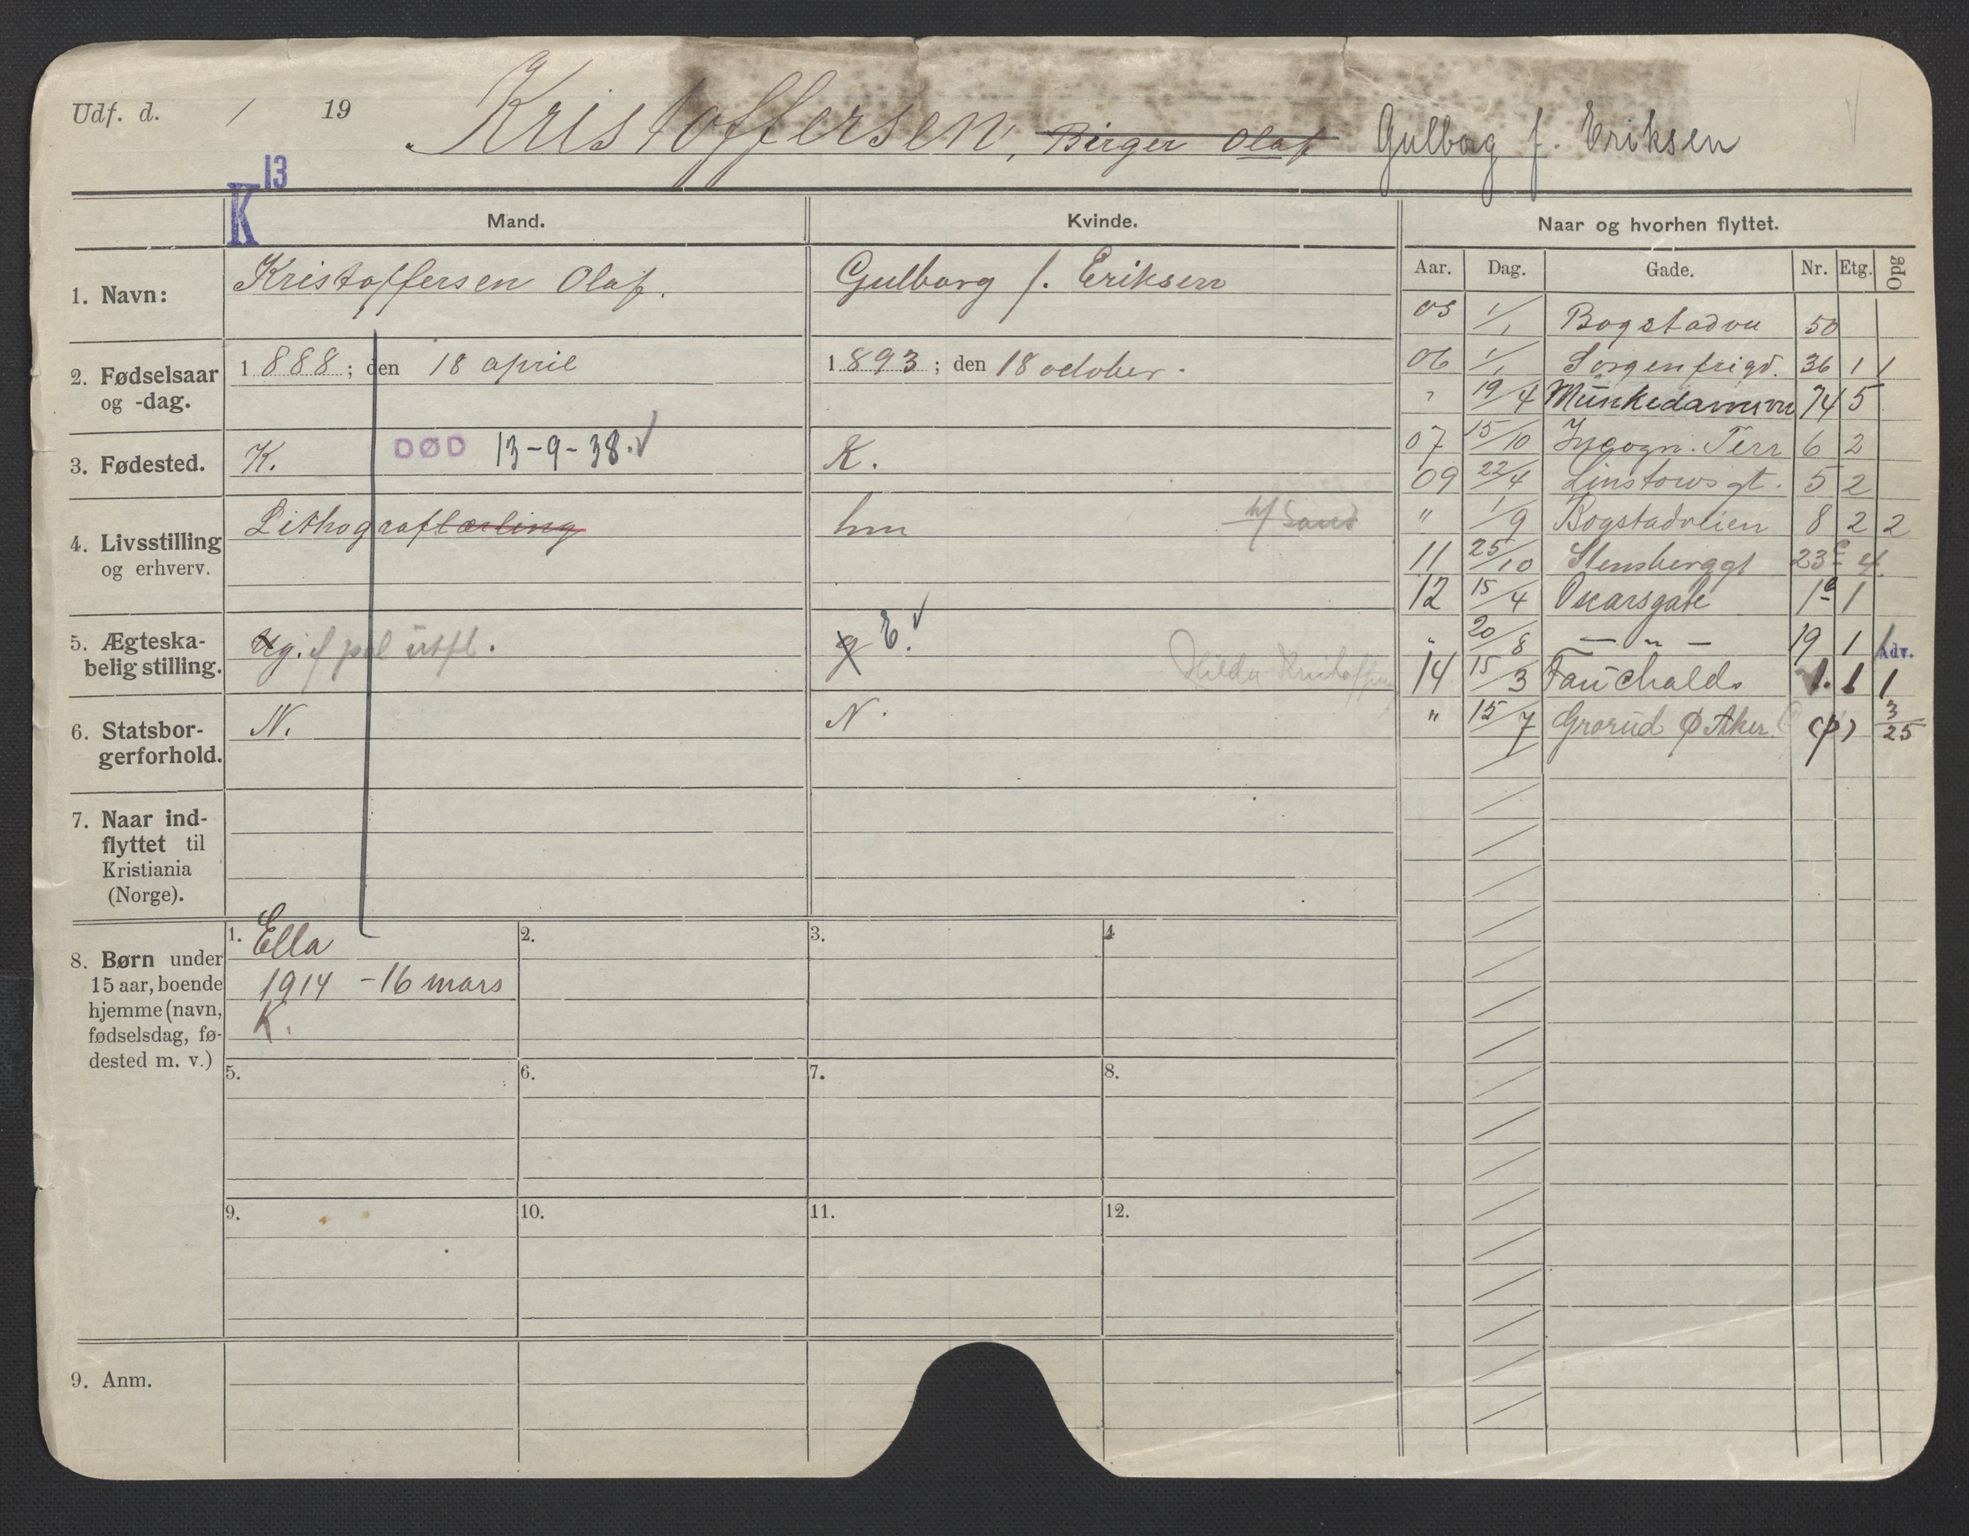 Udf. d. / 19 Kristoffersen, Birger Olaf Gulborg f. Eriksen
K 13
Mand. Kvinde. Naar og hvorhen flyttet.
Aar. Dag. Gade. Nr. Etg. Opg
1. Navn: Kristoffersen Olaf. Gulborg f. Eriksen
2. Fødselsaar og -dag. 1888; den 18 april 1893; den 18 october.
3. Fødested. K. DØD 13-9-38. K.
4. Livsstilling og erhverv. Lithograflærling hm
5. Ægteska-
belig stilling. Ug. g E.
Hilda Kristoffersen
6. Statsbor-
gerforhold. N. N.
7. Naar ind-
flyttet til
Kristiania
(Norge).
8. Børn under
15 aar, boende
hjemme (navn,
fødselsdag, fø-
dested m. v.)
1. Ella
1914 - 16 mars
K.
2.
3.
4
5.
6.
7.
8.
9.
10.
11.
12.
9. Anm.
05 1/1 Bogstadvn 50
06 1/1 Sorgenfrigd. 36 1 1
" 19/4 Munkedamsvn 74 5
07 15/10 Incogn. Terr 6 2
09 22/4 Linstowsgt. 5 2
" 1/9 Bogstadveien 8 2 2
11 25/10 Stensberggt 23c 4
12 15/4 Oscarsgate 1a 1
" 20/8 — " — 19 1 Adv.
14 15/3 Fauchalds 1. 1 1
" 15/7 Grorud Ø Aker. (p) 3/25